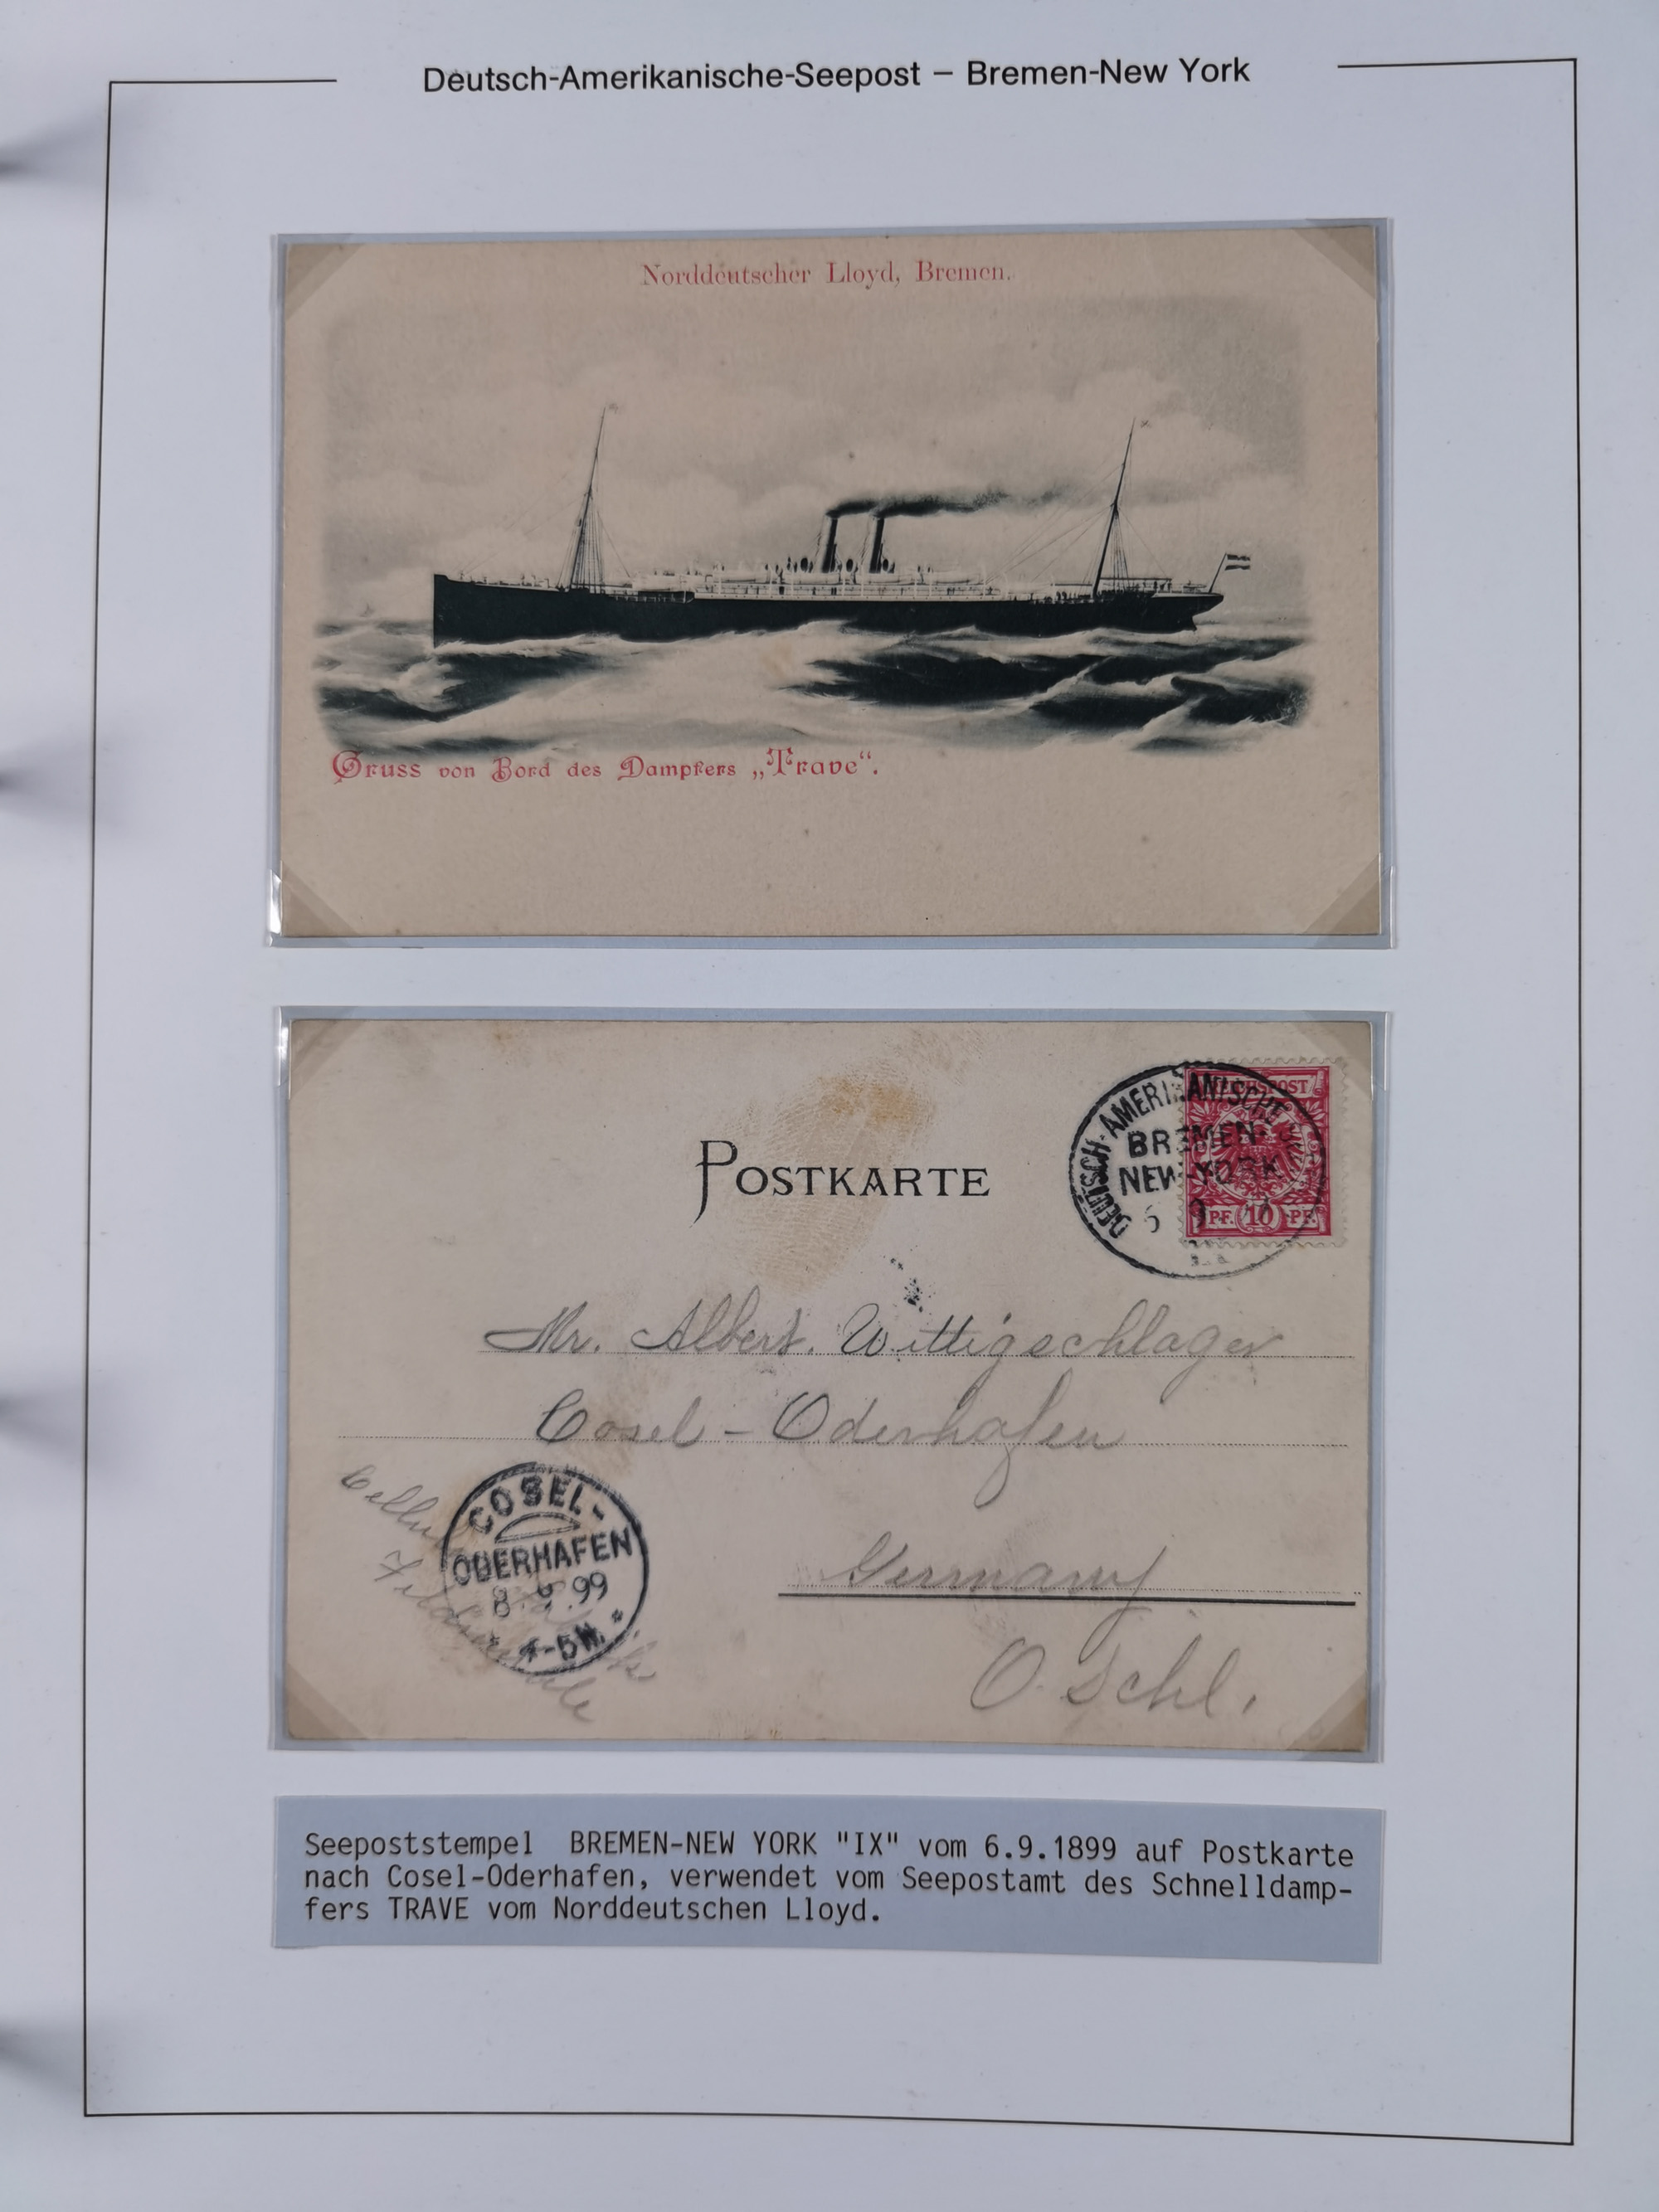 Deutsch-Amerikanische-Seepost – Bremen-New York
Norddeutscher Lloyd, Bremen.
Gruss von Bord des Dampfers „Trave“.
POSTKARTE
REICHSPOST
PF. 10 PF.
DEUTSCH-AMERIKANISCHE
BREMEN-
NEW-YORK
6 9
Mr. Albert. Wittigschlager
Cosel - Oderhafen
Germany
O. Schl.
COSEL-
ODERHAFEN
8.9.99
-5N.
Seepoststempel BREMEN-NEW YORK "IX" vom 6.9.1899 auf Postkarte
nach Cosel-Oderhafen, verwendet vom Seepostamt des Schnelldamp-
fers TRAVE vom Norddeutschen Lloyd.